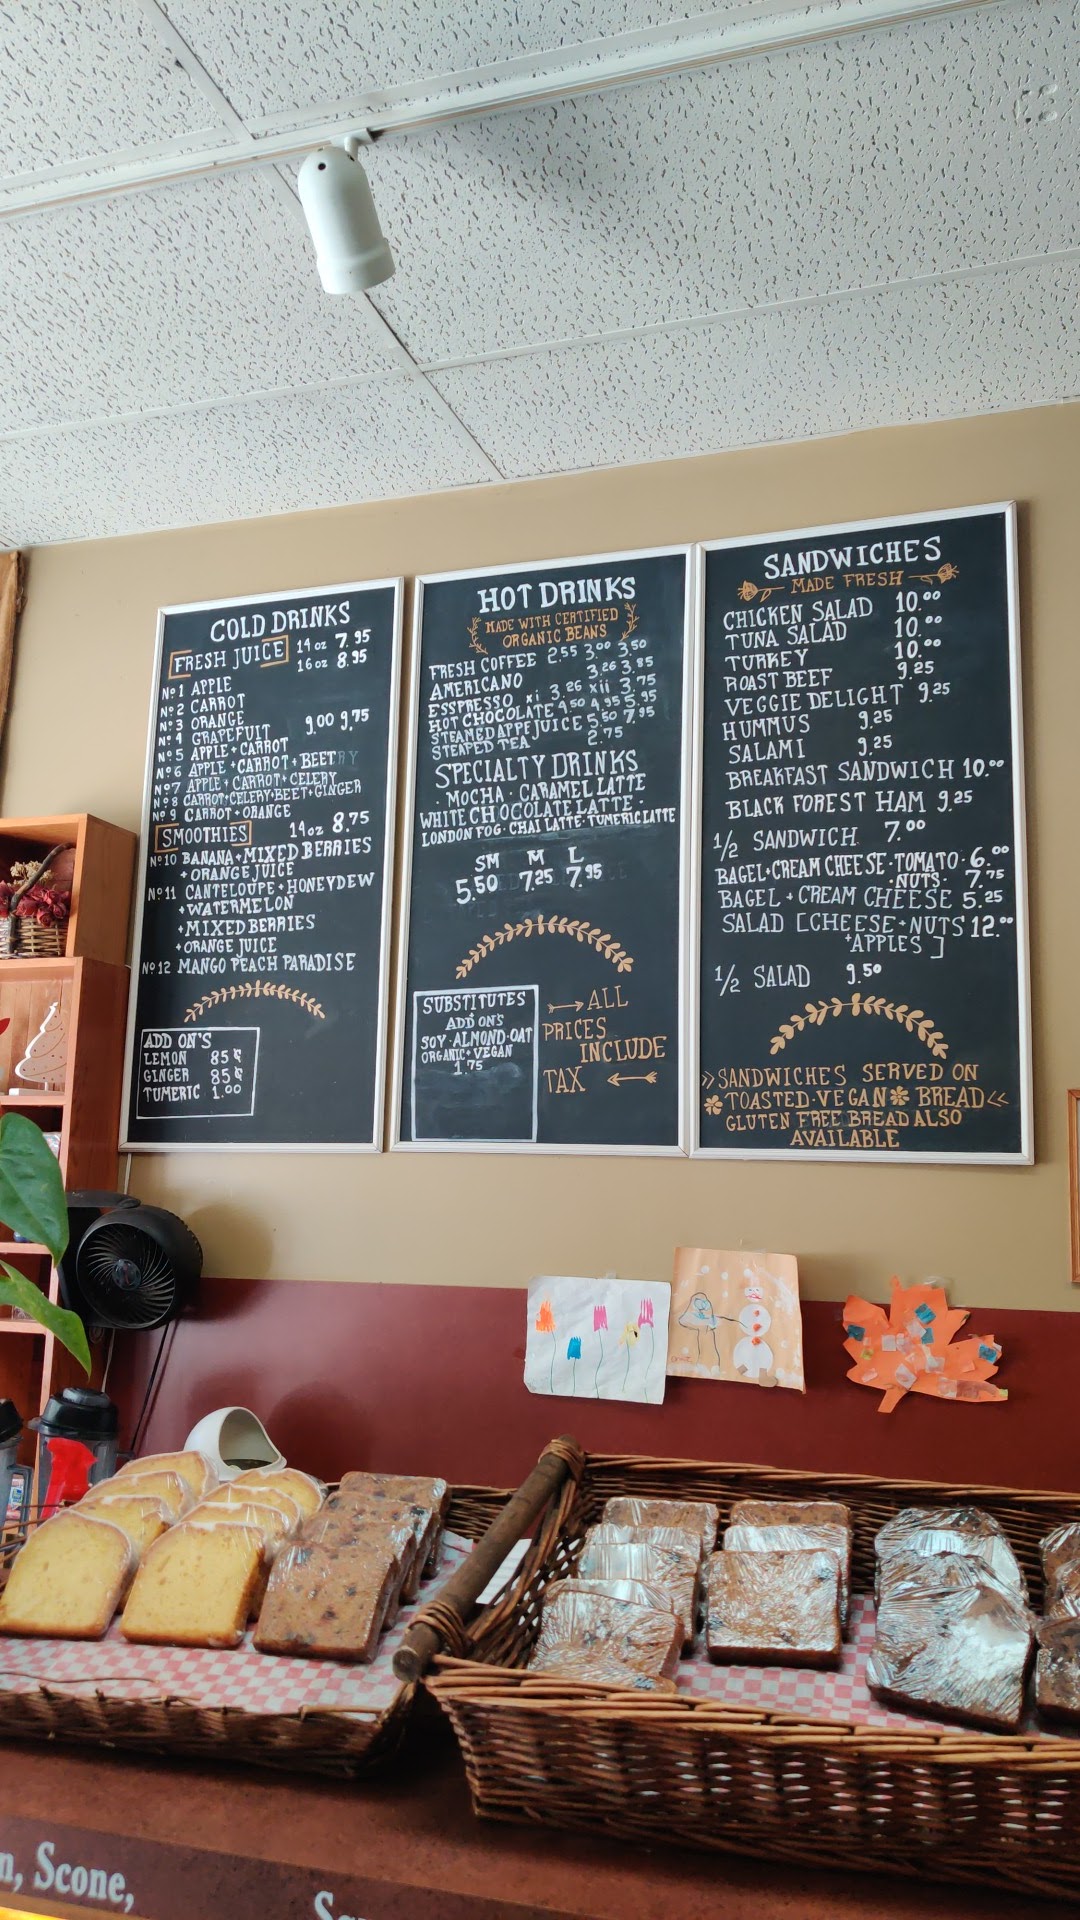 COLD DRINKS
FRESH JUICE 14 oz 7.95
16 oz 8.95
Nº1 APPLE
Nº2 CARROT
Nº3 ORANGE
Nº4 GRAPEFUIT 9.00 9.75
Nº5 APPLE + CARROT
Nº6 APPLE + CARROT + BEET
Nº7 APPLE + CARROT + CELERY
Nº8 CARROT + CELERY + BEET + GINGER
Nº9 CARROT + ORANGE
SMOOTHIES 14oz 8.75
Nº10 BANANA + MIXED BERRIES
+ ORANGE JUICE
Nº11 CANTELOUPE + HONEYDEW
+ WATERMELON
+ MIXED BERRIES
+ ORANGE JUICE
Nº12 MANGO PEACH PARADISE
ADD ON'S
LEMON 85¢
GINGER 85¢
TUMERIC 1.00
HOT DRINKS
MADE WITH CERTIFIED
ORGANIC BEANS
FRESH COFFEE 2.55 3.00 3.50
AMERICANO 3.26 3.85
ESSPRESSO xi 3.26 xii 3.75
HOT CHOCOLATE 4.50 4.95 5.95
STEAMED APPE JUICE 5.50 7.95
STEAPED TEA 2.75
SPECIALTY DRINKS
· MOCHA · CARAMEL LATTE
WHITE CHOCOLATE LATTE ·
LONDON FOG · CHAI LATTE · TUMERIC LATTE
SM M L
5.50 7.25 7.95
SUBSTITUTES
ADD ON'S
SOY · ALMOND · OAT
ORGANIC + VEGAN
1.75
ALL
PRICES
INCLUDE
TAX
SANDWICHES
MADE FRESH
CHICKEN SALAD 10.00
TUNA SALAD 10.00
TURKEY 10.00
ROAST BEEF 9.25
VEGGIE DELIGHT 9.25
HUMMUS 9.25
SALAMI 9.25
BREAKFAST SANDWICH 10.00
BLACK FOREST HAM 9.25
1/2 SANDWICH 7.00
BAGEL + CREAM CHEESE · TOMATO · 6.00
NUTS · 7.75
BAGEL + CREAM CHEESE 5.25
SALAD [CHEESE + NUTS 12.00
+ APPLES]
1/2 SALAD 9.50
»SANDWICHES SERVED ON
TOASTED · VEGAN BREAD«
GLUTEN FREE BREAD ALSO
AVAILABLE
n, Scone,